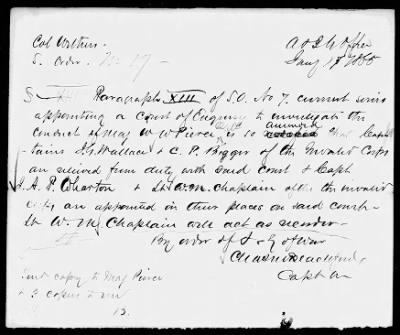 Col Withers.
A & I G Office
S. Order. No 17
Jany 19
Paragraph XIII of S.O. No 7. current series
appointing a Court of Enquiry to investigate the
conduct of Maj W. W. Peirce is so amended that Cap-
tains Wallace & C. P. Bigger of the Invalid Corps
are relieved from duty with said court & Capt.
J. A. P. Wharton & Lt W. M. Chaplain also the invalid
are appointed in their places on said court.
Lt W. M. Chaplain will act as recorder
By order of of War
Capt
Sent copy to Maj Peirce
& 3 copies to